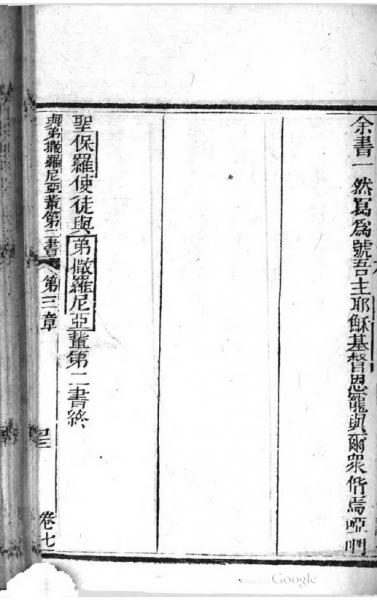 余書一然為為號吾主耶穌基督恩寵與爾眾偕焉啞們
聖保羅使徒與弟撒羅尼亞輩第二書終
與弟撒羅尼亞輩第二書 第三章
卷七
Google